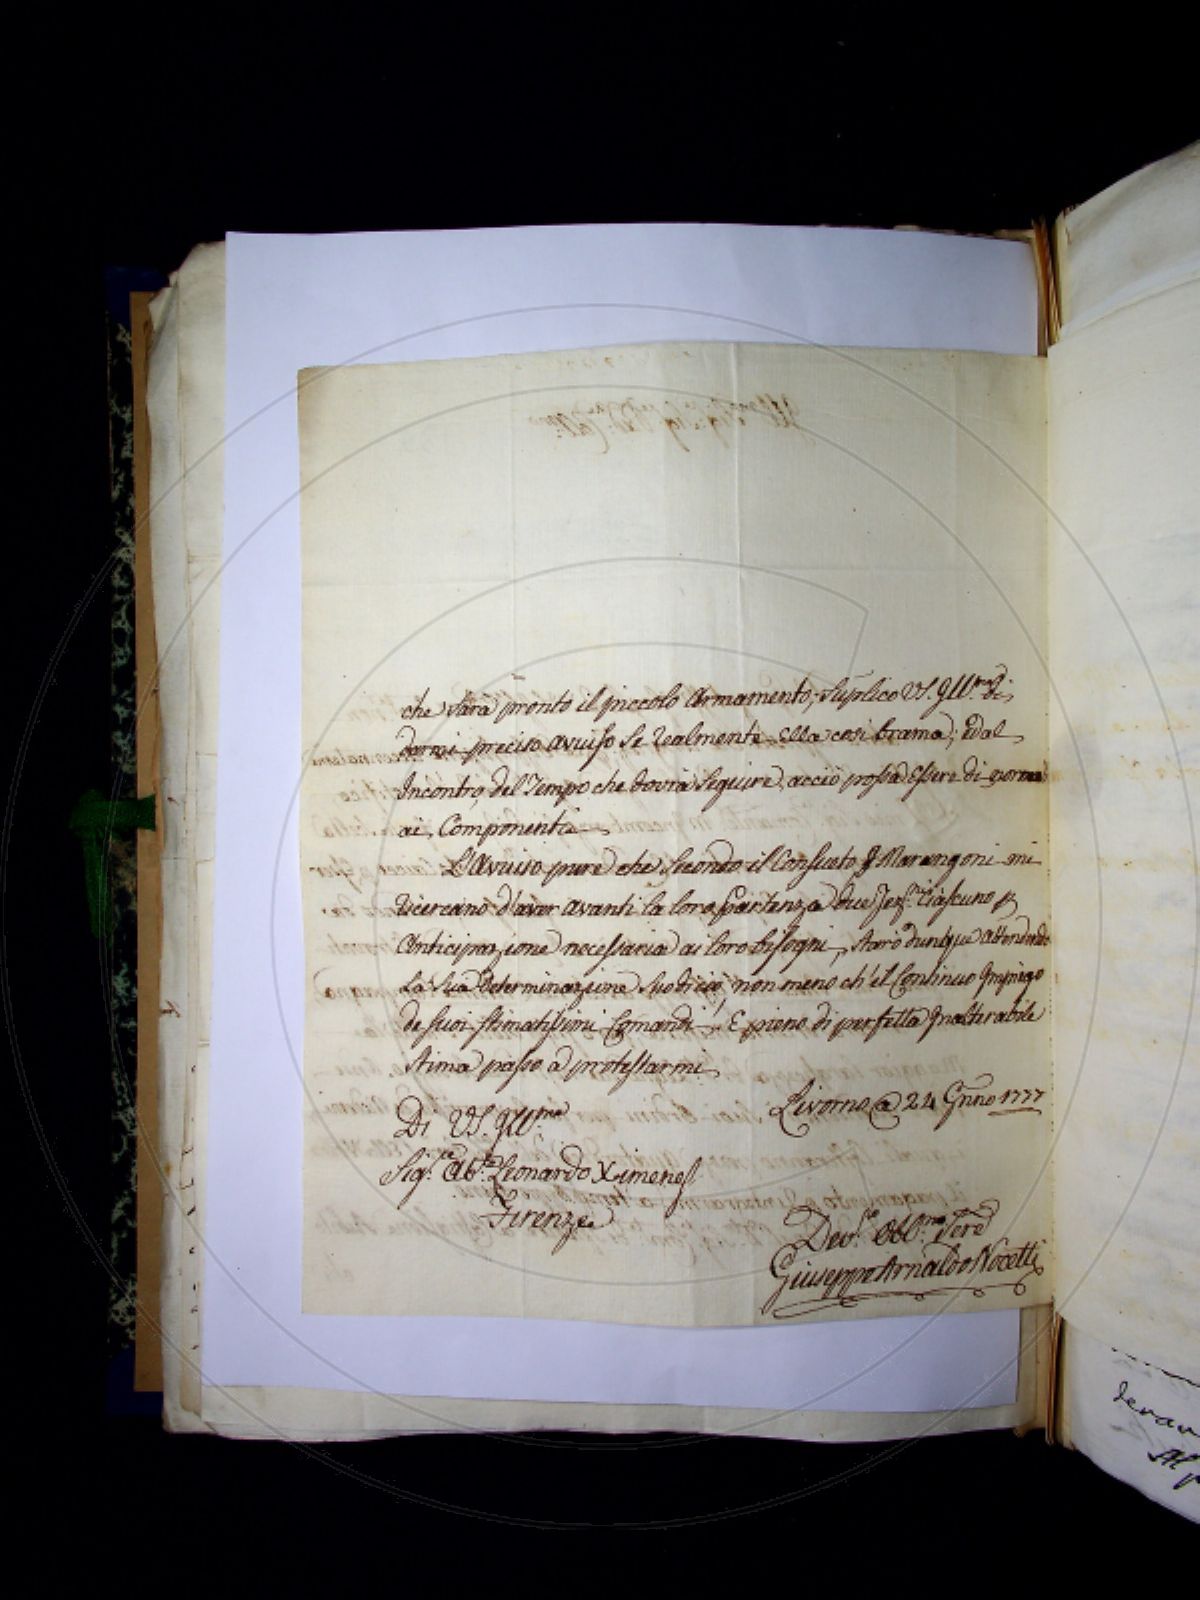 che sarà pronto il piccolo Armamento, Suplico VS. Ill.ma di
darmi preciso avviso se realmente ella così brama; e dal
Incontro del Tempo che dovrà seguire, acciò possa Essere di norma
ai Componenti
L'Avviso pure che secondo il Consueto, Marangoni mi
ricercano d'aver avanti la loro Partenza due ciascuno p
Anticipazione necessaria ai loro bisogni, starò dunque attendendo
la sua determinazione non meno ch'il Continuo Impiego
de suoi stimatissimi Comandi, E pieno di perfetta Inalterabile
stima passo a protestarmi
Livorno a 24 Gnno 1777
Di VS. Ill.ma
Sig.re Ab.te Leonardo Ximenes
Firenze
Dev.o Obb.mo Sere
Giuseppe Arnaldo Nocetti